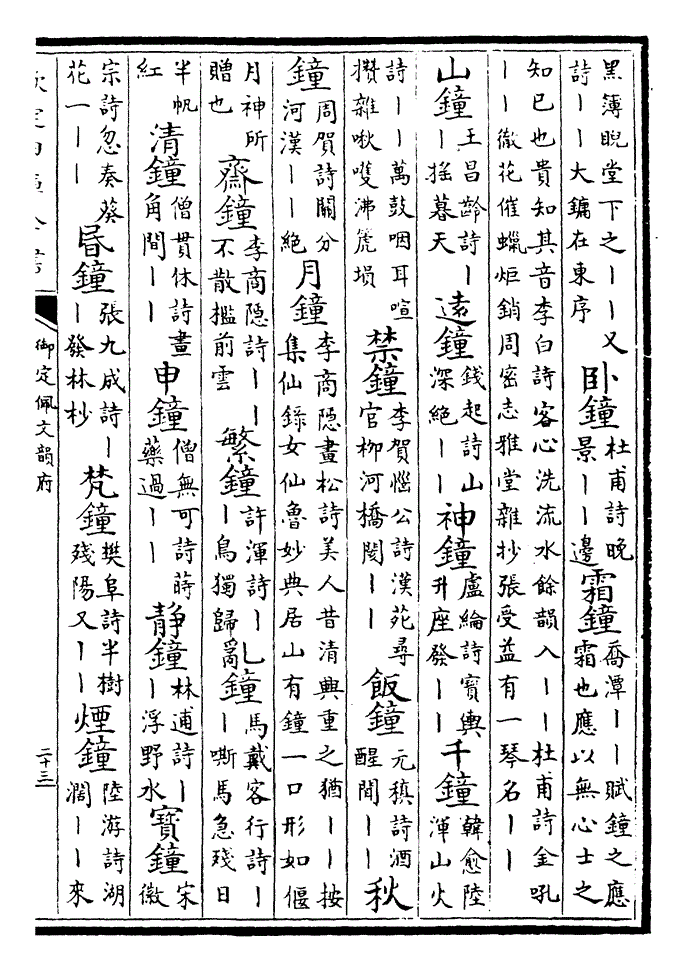 黒簿睨堂下之丨丨又詩丨丨大鏞在東序 卧鐘 杜甫詩晩景丨丨邊 霜鐘 喬潭丨丨賦鐘之應霜也應以無心士之
知已也貴知其音李白詩客心洗流水餘韻入丨丨杜甫詩金吼丨丨徹花催蠟炬銷周密志雅堂雜抄張受益有一琴名丨丨
山鐘 王昌齡詩丨丨揺暮天 遠鐘 錢起詩山深絶丨丨 神鐘 盧綸詩寳輿升座發丨丨 千鐘 韓愈陸渾山火
詩丨丨萬鼓咽耳喧攢雜啾嘍沸篪塤 禁鐘 李賀惱公詩漢苑尋官栁河橋閡丨丨 飯鐘 元稹詩酒醒聞丨丨 秋
鐘 周賀詩關分河漢丨丨絶 月鐘 李商隱畫松詩美人昔清興重之猶丨丨按集仙錄女仙魯妙典居山有鐘一口形如偃
月神所贈也 齋鐘 李商隱詩丨丨不散檻前雲 繁鐘 許渾詩丨丨鳥獨歸 亂鐘 馬戴客行詩丨丨嘶馬急殘日
半帆紅 清鐘 僧貫休詩晝角間丨丨 申鐘 僧無可詩蒔藥過丨丨 静鐘 林逋詩丨丨浮野水 寳鐘 宋徽
宗詩忽奏葵花一丨丨 昏鐘 張九成詩丨丨發林杪 梵鐘 樊阜詩半樹殘陽又丨丨 煙鐘 陸游詩湖濶丨丨來
欽定四庫全書
御定佩文韻府
二十三